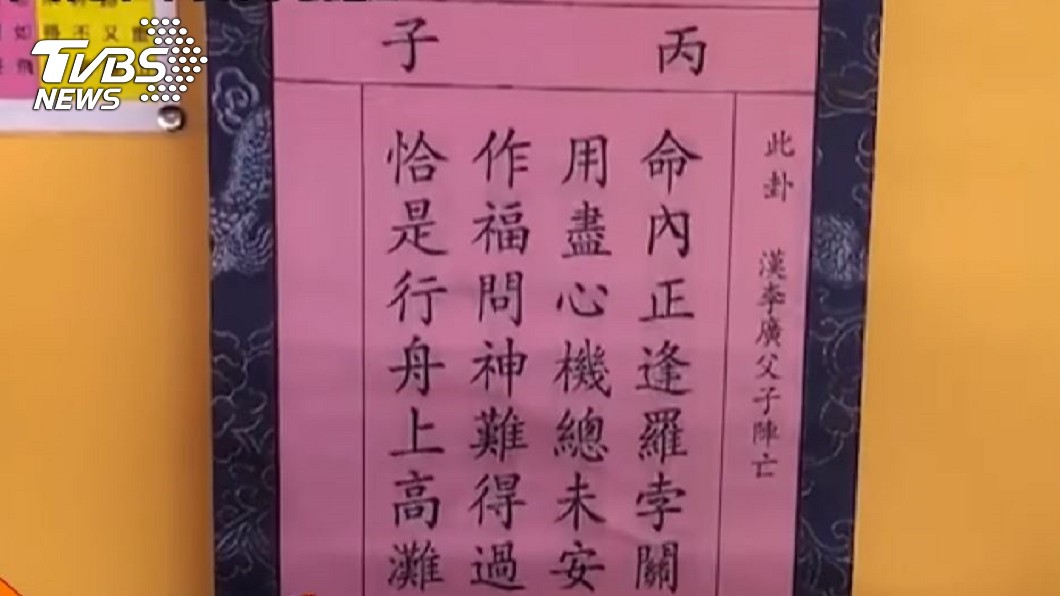 TVBS
NEWS
丙子
此卦 漢李廣父子陣亡
命內正逢羅孛關
用盡心機總未安
作福問神難得過
恰是行舟上高灘